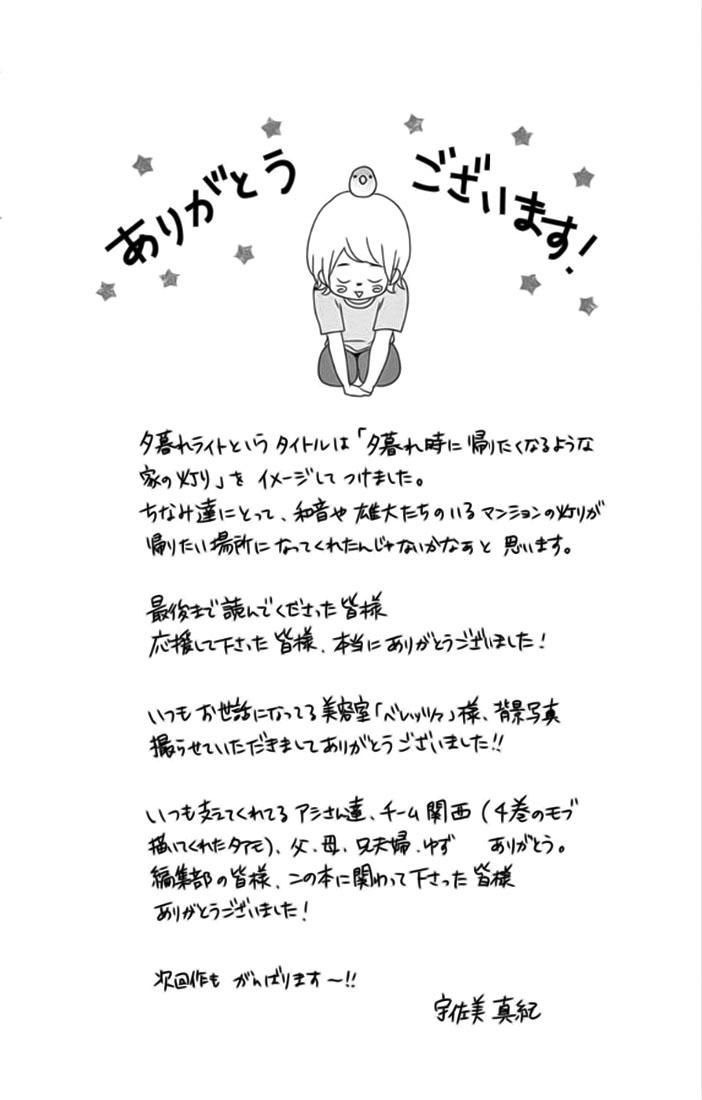 ありがとう ございます!
夕暮れライトというタイトルは「夕暮れ時に帰りたくなるような
家の灯り」をイメージしてつけました。
ちなみ達にとって、和音や雄大たちのいるマンションの灯りが
帰りたい場所になってくれたんじゃないかなぁと思います。
最後まで読んでくださった皆様
応援して下さった皆様、本当にありがとうございました!
いつもお世話になってる美容室「ベレッツァ」様、背景写真
撮らせていただきましてありがとうございました!!
いつも支えてくれてるアシさん達、チーム関西(4巻のモブ
描いてくれた)、父、母、兄夫婦、ゆず ありがとう。
編集部の皆様、この本に関わって下さった皆様
ありがとうございました!
次回作もがんばります〜!!
宇佐美真紀